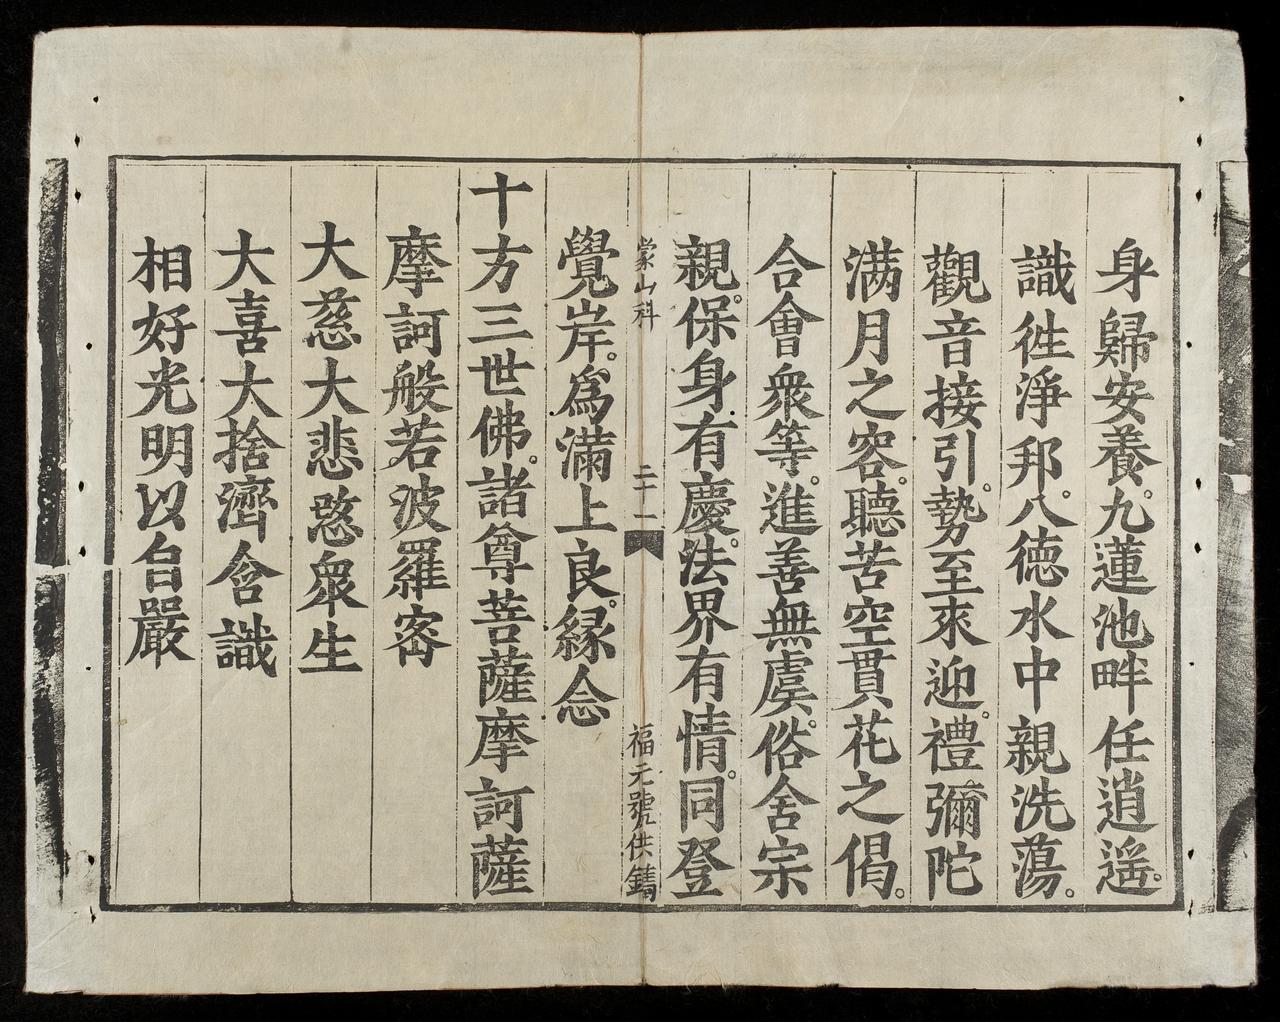 身歸安養。九蓮池畔任逍遥。
識徃淨邦。八德水中親洗蕩。
觀音接引。勢至來迎。禮彌陀
满月之容。聽苦空貫花之偈。
合會衆等。進善無虞。俗舍宗
親。保身有慶。法界有情。同登
蒙山科 二十一 福元號供鐫
覺岸。爲滿上良。緣念
十方三世佛。諸尊菩薩摩訶薩
摩訶般若波羅宻
大慈大悲愍衆生
大喜大捨濟含識
相好光明以自嚴